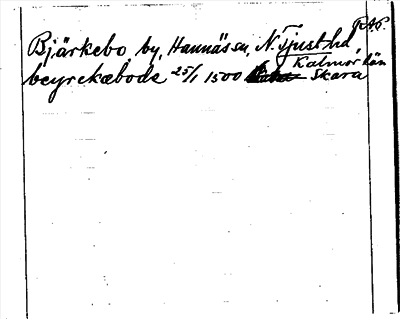 RAP.
Bjärkebo by, Hannäs sn, N. Tjust hd,
Kalmar län
beyrekæbode 25/1 1500 Skara